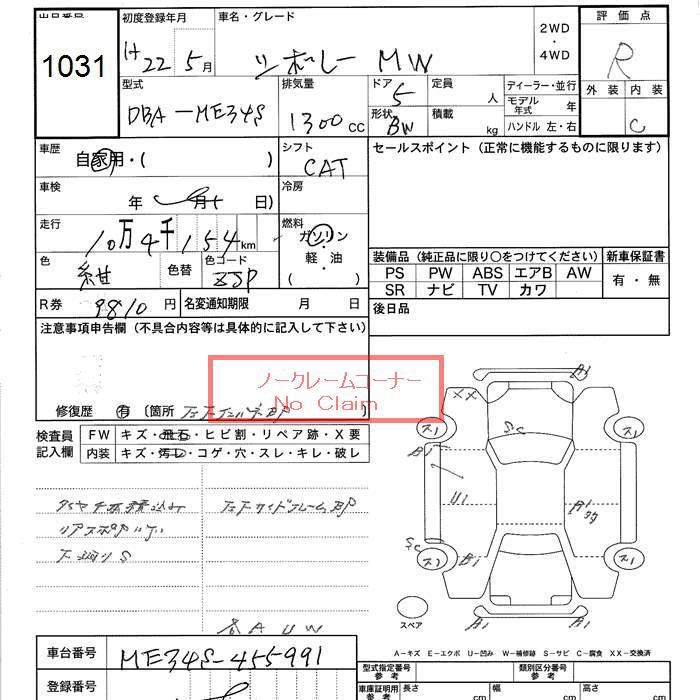 出品番号
1031
初度登録年月
H 22 5 月
車名・グレード
シボレー MW
2WD
・
4WD
評価点
R
外装 内装
C
型式
DBA-ME34S
排気量
1300 cc
ドア
5
形状
BW
定員
人
積載
kg
ディーラー・並行
モデル年式 年
ハンドル 左・右
車歴
自家用・( )
シフト
CAT
セールスポイント (正常に機能するものに限ります)
車検
年 月( 日)
冷房
走行
10万4千154km
燃料
ガソリン
軽・油
( )
色
紺
色替
色コード
ZJP
装備品 (純正品に限り〇をつけてください)
PS PW ABS エアB AW
SR ナビ TV カワ
新車保証書
有・無
R券 9810 円
名変通知期限 月 日
後日品
注意事項申告欄 (不具合内容等は具体的に記入して下さい)
ノークレームコーナー
No Claim
修復歴 有 〔箇所
検査員
記入欄
FW キズ・飛石・ヒビ割・リペア跡・X要
内装 キズ・汚レ・コゲ・穴・スレ・キレ・破レ
下廻りS
A1
XX
ス1
ス1
B1
Sc
U1
A1
Sc
B1
ス1
ス1
A1
A1
スペア
A U W
A-キズ E-エクボ U-凹み W-補修跡 S-サビ C-腐食 XX-交換済
車台番号 ME34S-455991
登録番号
型式指定番号
類別区分番号
車庫証明用
参考
長さ cm
幅 cm
高さ cm